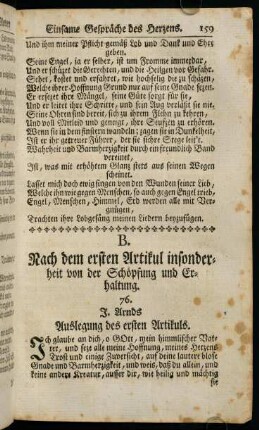 Einsame Gespräche des Herzens. 159
Und ihm meiner Pflicht gemäß Lob und Dank und Ehre
geben.
Seine Engel, ja er selber, ist um Fromme immerdar,
Und er schützet die Gerechten, und die Heilgen vor Gefahr.
Sehet, kostet und erfahret, wie hochselig die zu schätzen,
Welche ihrer Hoffnung Grund nur auf seine Gnade setzen.
Er erfreut ihre Mängel, seine Güte sorgt für sie,
Und er leitet ihre Schritte, und sein Aug verläßt sie nie.
Seine Ohren sind bereit, sich zu ihrem Flehn zu kehren,
Und voll Mitleid und geneigt, ihre Seufzer zu erhören.
Wenn sie in dem finstern wandeln; zagen sie in Dunkelheit,
Ist er ihr getreuer Führer, der sie sichre Stege leit't.
Wahrheit und Barmherzigkeit durch ein freundlich Band
vereinet,
Ist, was mit erhöhtem Glanz stets aus seinen Wegen
scheinet.
Lasset mich doch ewig singen von den Wundern seiner Lieb,
Welche ihn wie gegen Menschen, so auch gegen Engel trieb,
Engel, Menschen, Himmel, Erd werden alle mit Ver-
gnügen,
Trachten ihre Lobgesäng meinen Liedern beyzufügen.
B.
Nach dem ersten Artikul insonder-
heit von der Schöpfung und Er-
haltung.
76.
J. Arnds
Auslegung des ersten Artikuls.
Ich glaube an dich, o GOtt, mein himmlischer Va-
ter, und setz alle meine Hoffnung, meines Herzens
Trost und einige Zuversicht, auf deine lautere blose
Gnade und Barmherzigkeit, und weis, daß du allein, und
keine andere Kreatur, ausser dir, wie heilig und mächtig
sie